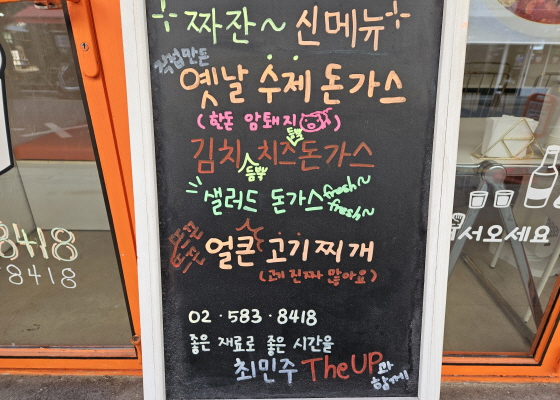 짜잔~ 신메뉴
직접만든
옛날 수제 돈가스
(한돈 암퇘지)
듬뿍
김치 치즈돈가스
듬뿍
샐러드 돈가스 fresh~
fresh~
얼큰 고기찌개
(고기 진짜 많아요)
02·583·8418
좋은 재료로 좋은 시간을
최민주 The UP과
함께
8418
8418
어서오세요